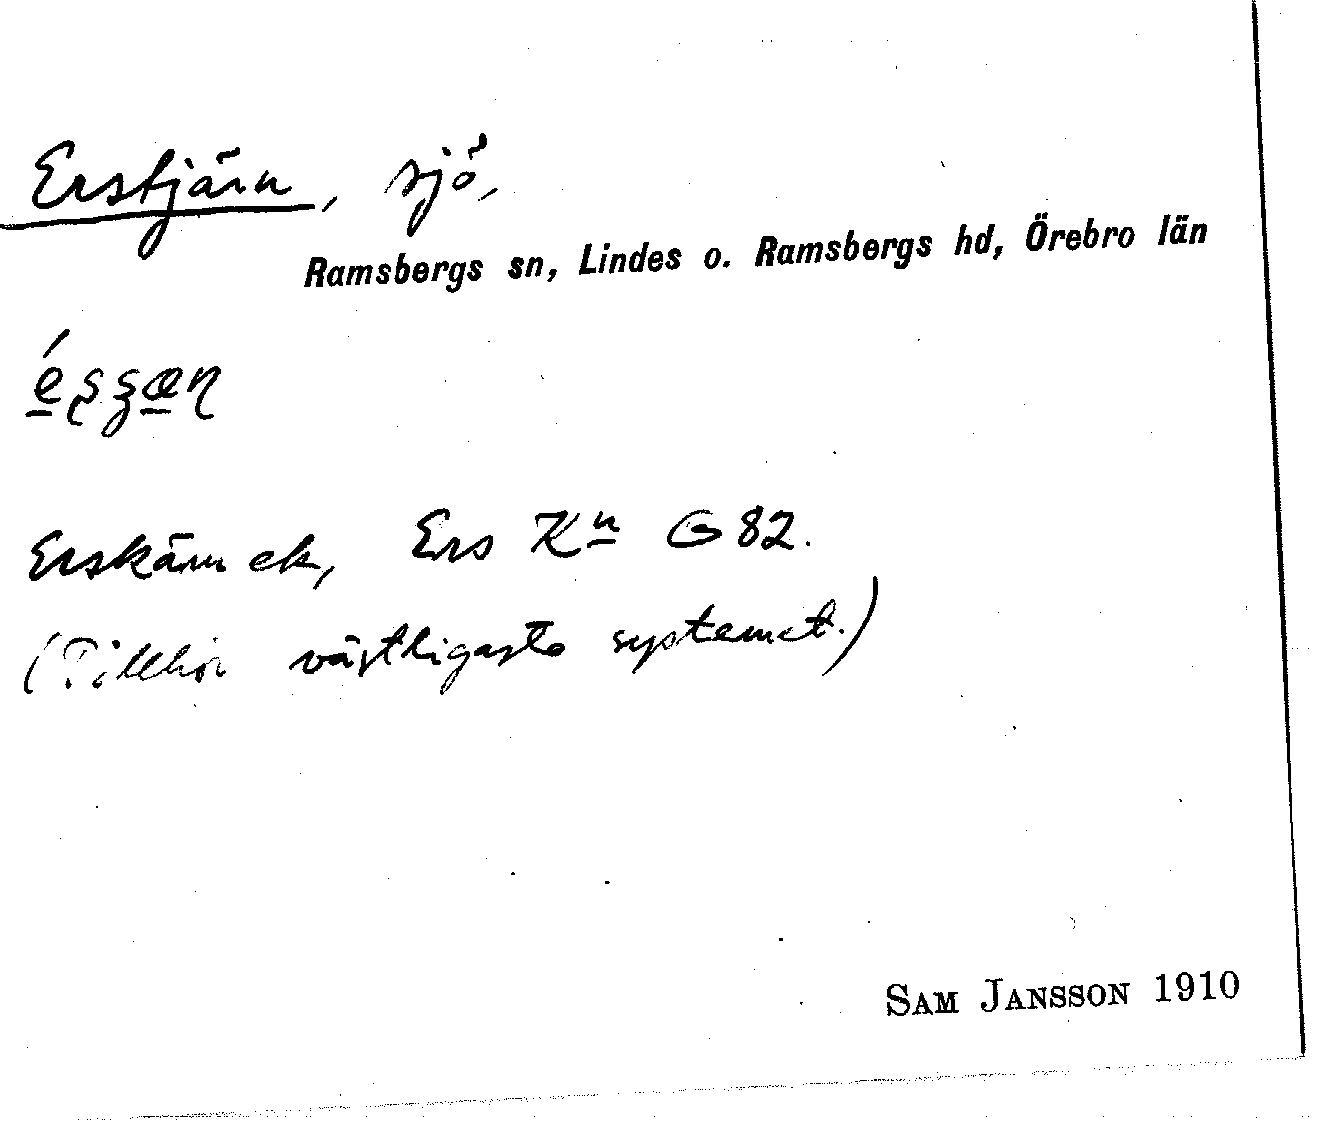 Erstjärn, sjö,
Ramsbergs sn, Lindes o. Ramsbergs hd, Örebro län
Erskärn ek, Ers Kn G 82.
(Tillhör västligaste systemet.)
SAM JANSSON 1910